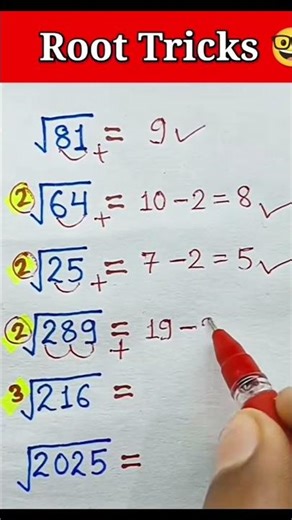 Root Tricks 🤓
√81 + = 9 ✓
②√64 + = 10 - 2 = 8 ✓
②√25 + = 7 - 2 = 5 ✓
②√289 + = 19 -
3√216 =
√2025 =